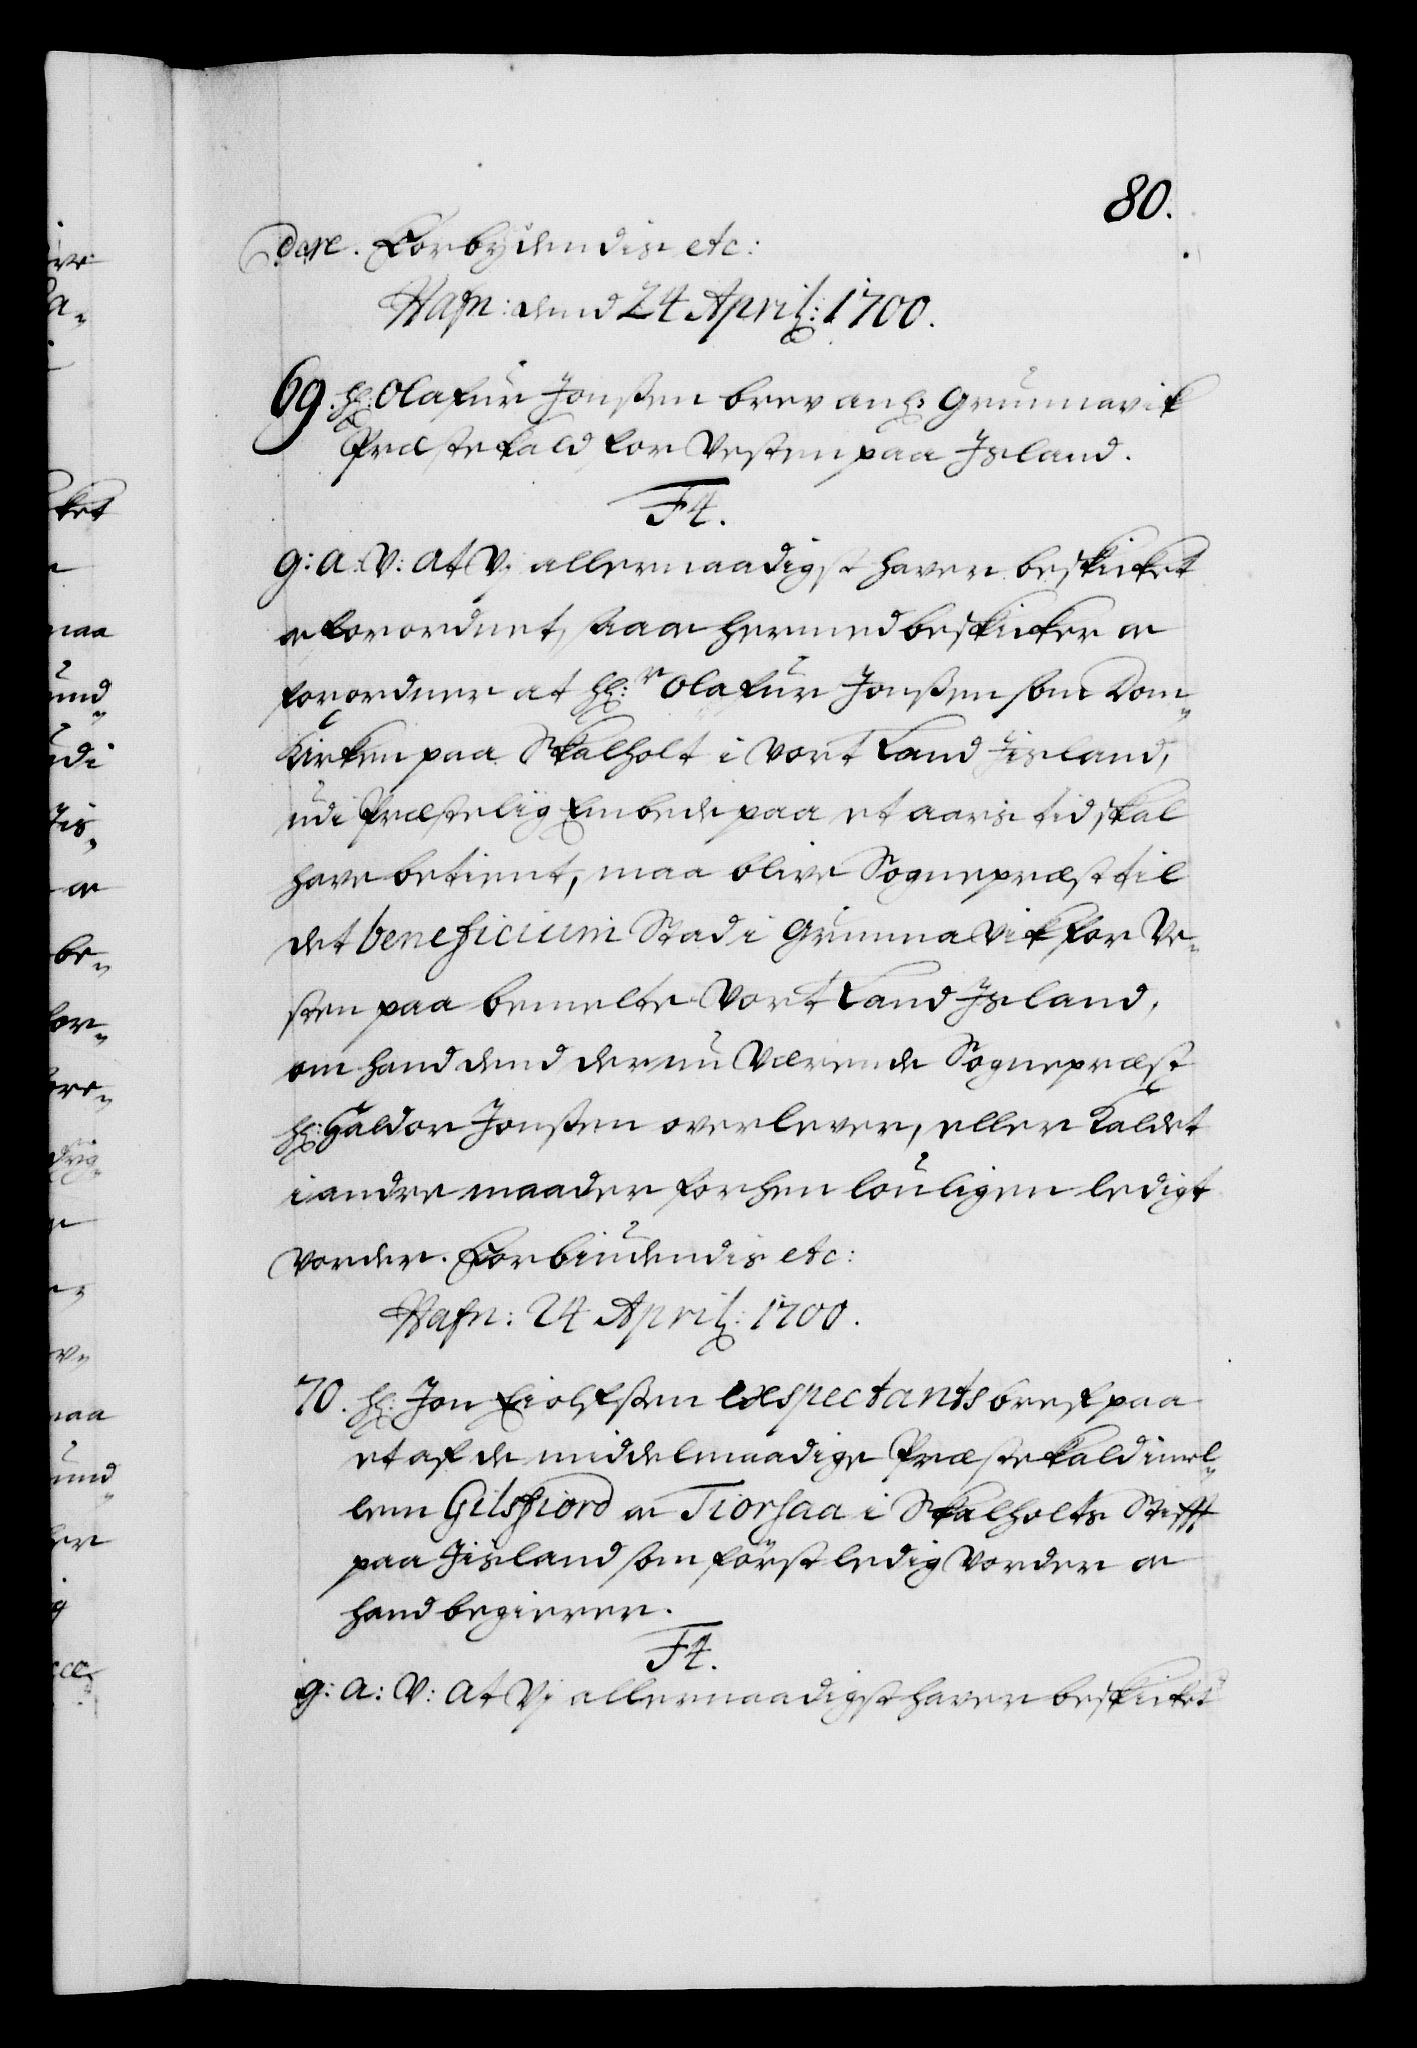 80.
dere. Forbydendis etc:
Hafn: dend 24 April: 1700.
69. H: Olafur Jonssen brev an: Grunnavik
Præstekald for Vesten paa Jsland.
F4.
G: A: V: at Vi allernaadigst haver beskicket
oc forordnet, saa oc hermed beskicker oc
forordner at H:r Olafur Jonssen som Dom-
Kirken paa Skalholt i Vort Land Jisland,
udi Præstelig Embede paa et aars tid skal
have betient, maa blive Sognepræst til
det beneficium Stad i Grunnavik for Ve-
sten paa bemelte Vort Land Jsland,
om hand dend der nu Værende Sognepræst
H: Haldor Jonssen overlever, eller Kaldet
i andre maader forhen louligen ledigt
vorder. Forbiudendis etc:
Hafn: 24 April: 1700.
70. H: Jon Eiolfssen exspectants bref paa
et af de middelmaadige Præstekald imel-
lem Gilsfiord oc Tiorsaa i Skalholts Stifft
paa Jisland som først ledig vorder oc
hand begierer.
F4.
G: A: V: at Vi allernaadigst haver beskicket